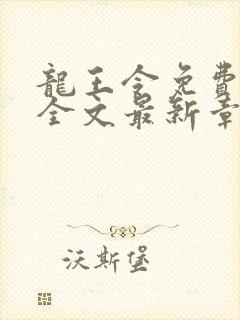 龍王令免費
全文最新章
沃斯堡